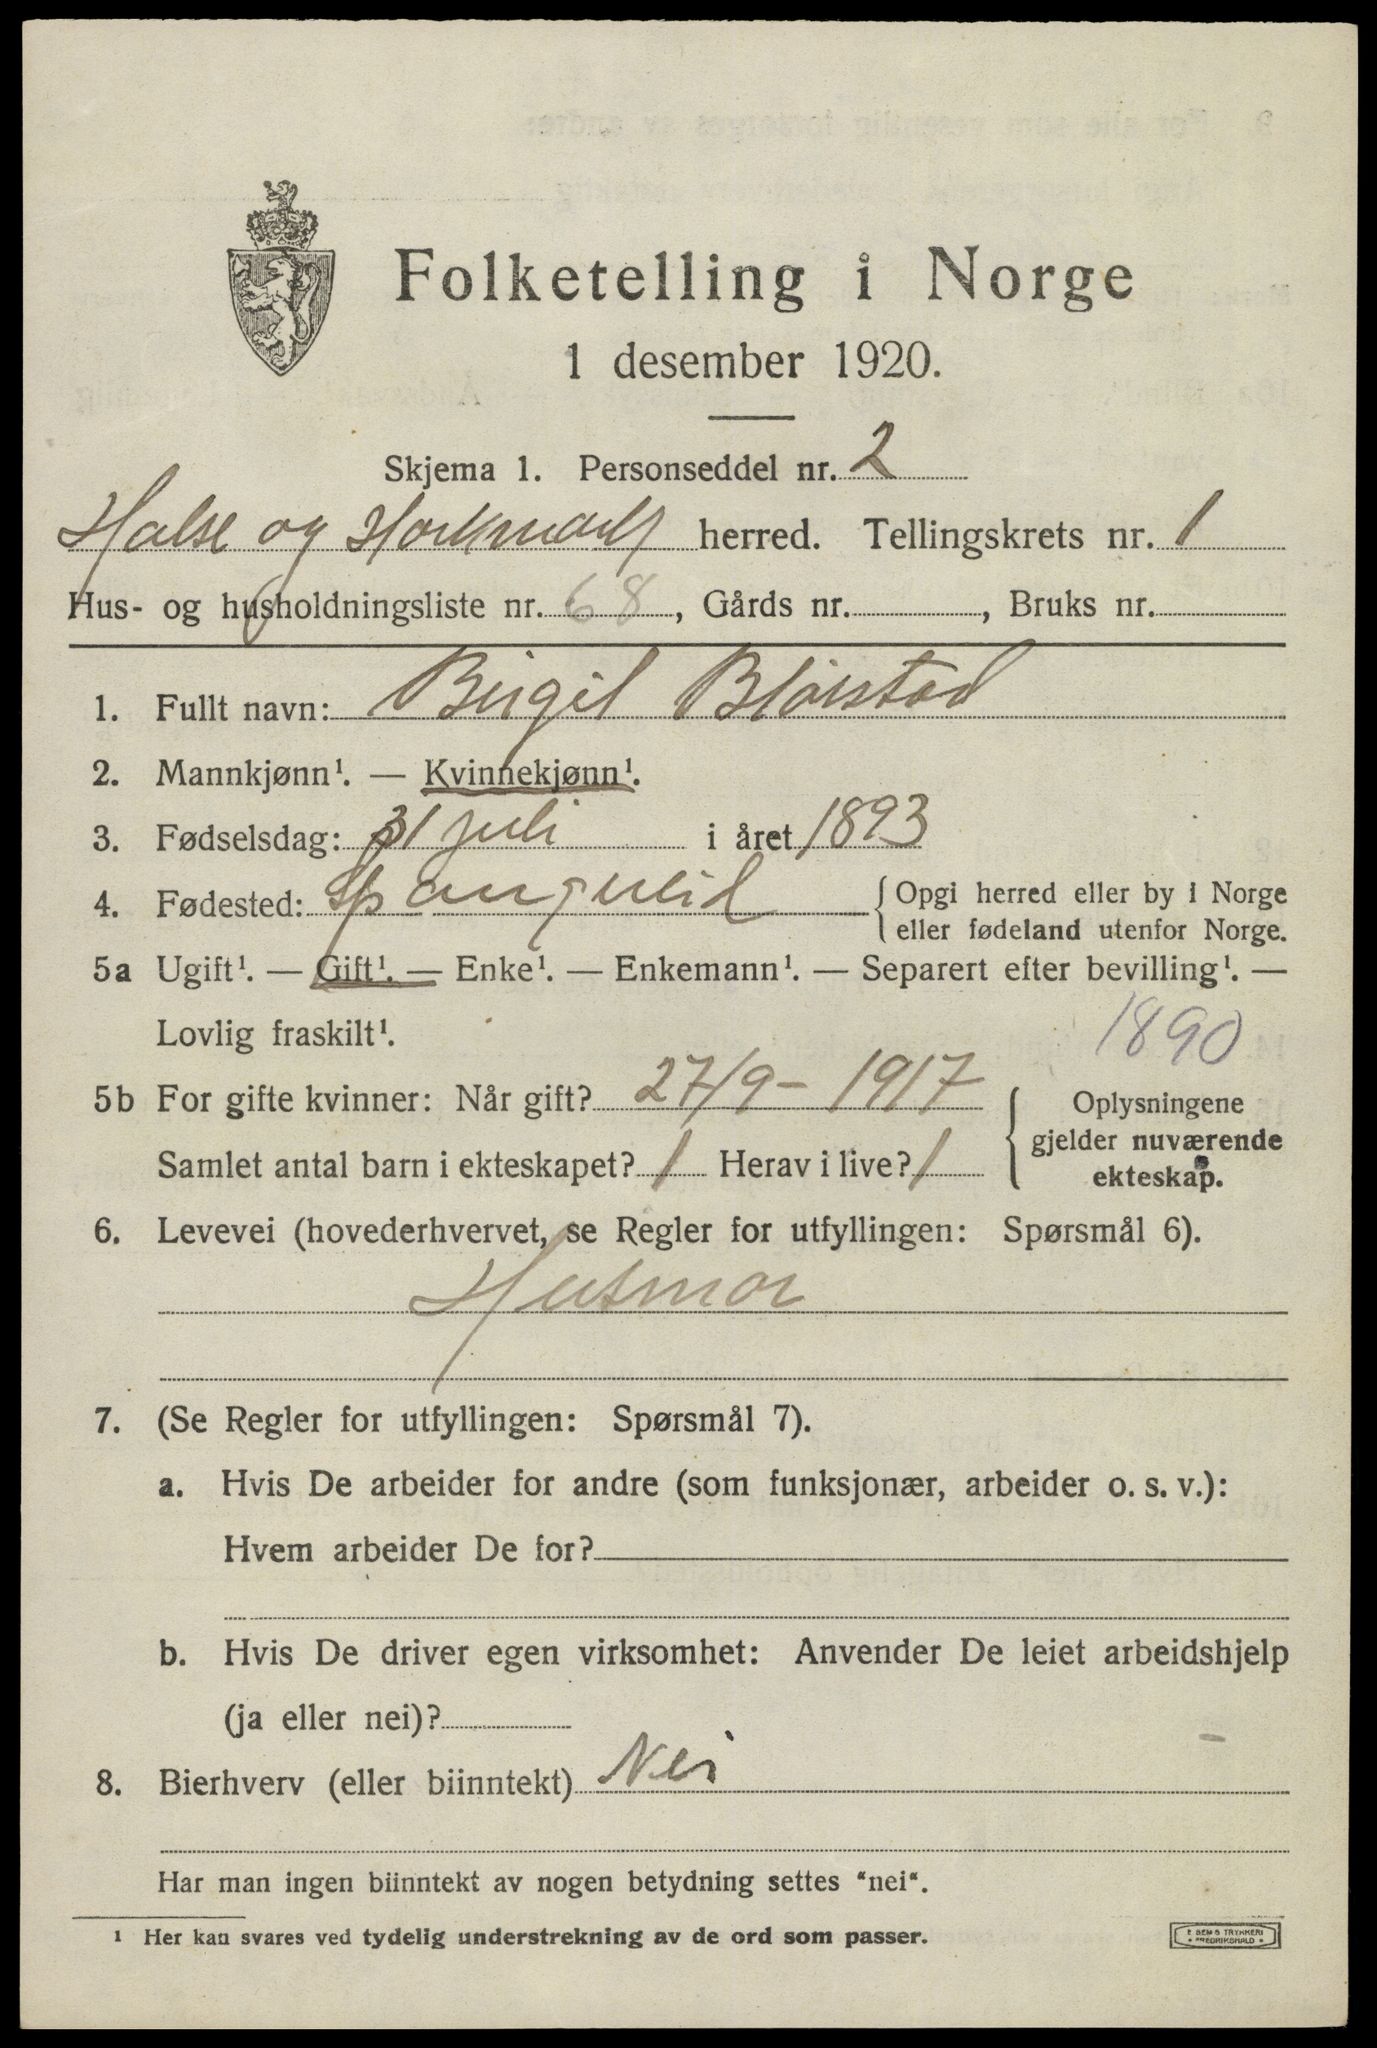 Folketelling i Norge
1 desember 1920.
Skjema 1. Personseddel nr. 2
Halse og Harkmark herred. Tellingskrets nr. 1
Hus- og husholdningsliste nr. 68, Gårds nr. , Bruks nr.
1. Fullt navn: Birgit
2. Mannkjønn¹. — Kvinnekjønn¹.
3. Fødselsdag: 31 juli i året 1893
4. Fødested: Spangereid { Opgi herred eller by i Norge
eller fødeland utenfor Norge.
5a Ugift¹. — Gift¹. — Enke¹. — Enkemann¹. — Separert efter bevilling¹. —
Lovlig fraskilt¹. 1890
5b For gifte kvinner: Når gift? 27/9 - 1917
Samlet antal barn i ekteskapet? 1 Herav i live? 1
Oplysningene
gjelder nuværende
ekteskap.
6. Levevei (hovederhvervet, se Regler for utfyllingen: Spørsmål 6).
Husmor
7. (Se Regler for utfyllingen: Spørsmål 7).
a. Hvis De arbeider for andre (som funksjonær, arbeider o. s. v.):
Hvem arbeider De for?
b. Hvis De driver egen virksomhet: Anvender De leiet arbeidshjelp
(ja eller nei)?
8. Bierhverv (eller biinntekt) Nei
Har man ingen biinntekt av nogen betydning settes "nei".
¹ Her kan svares ved tydelig understrekning av de ord som passer.
E SEMS TRYKKERI
FREDRIKSHALD